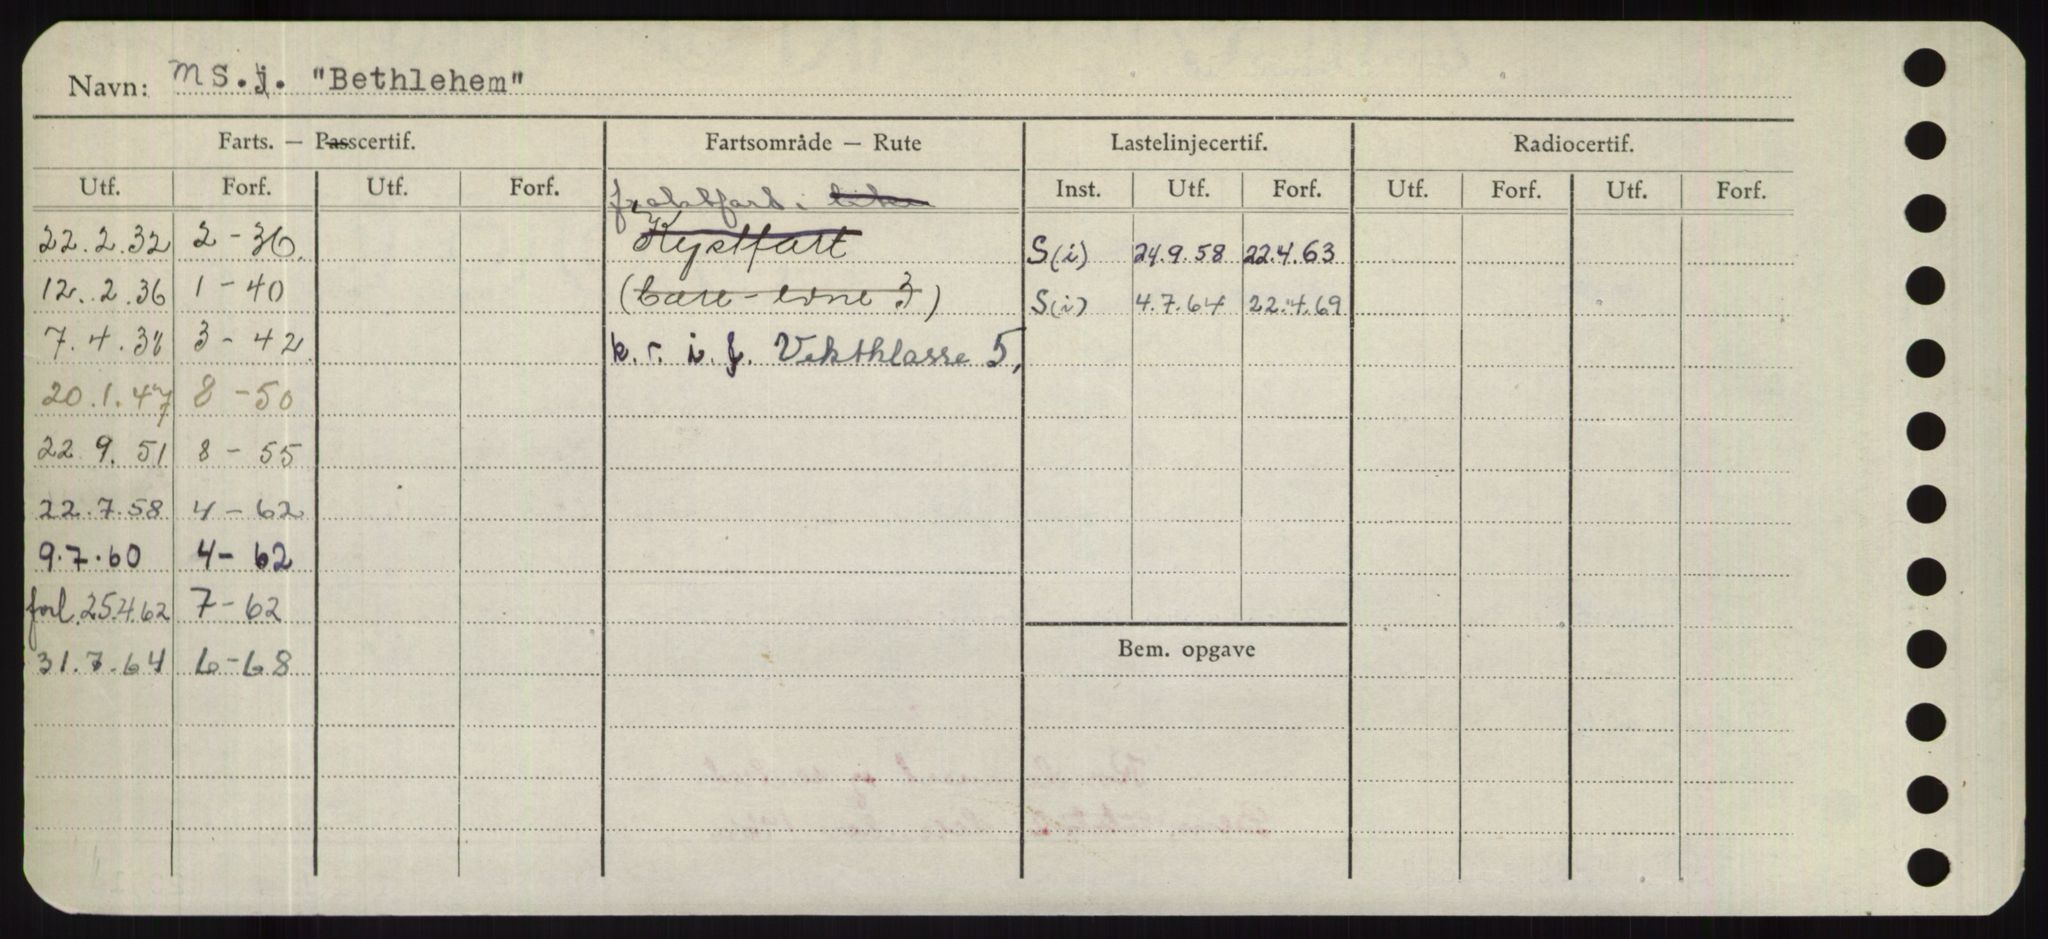 Navn: MS.j. "Bethlehem"
Farts. — Passcertif. Fartsområde — Rute Lastelinjecertif. Radiocertif.
Utf. Forf. Utf. Forf. Inst. Utf. Forf. Utf. Forf. Utf. Forf.
fraktfart i
22.2.32 2-36. Kystfart S(i) 24.9.58 22.4.63
12.2.36 1-40 (bære-evne 3) S(i) 4.7.64 22.4.69
7.4.38 3-42 k.r. i. f. Vektklasse 5,
20.1.47 8-50
22.9.51 8-55
22.7.58 4-62
9.7.60 4-62
forl. 25.4.62 7-62
31.7.64 6-68
Bem. opgave